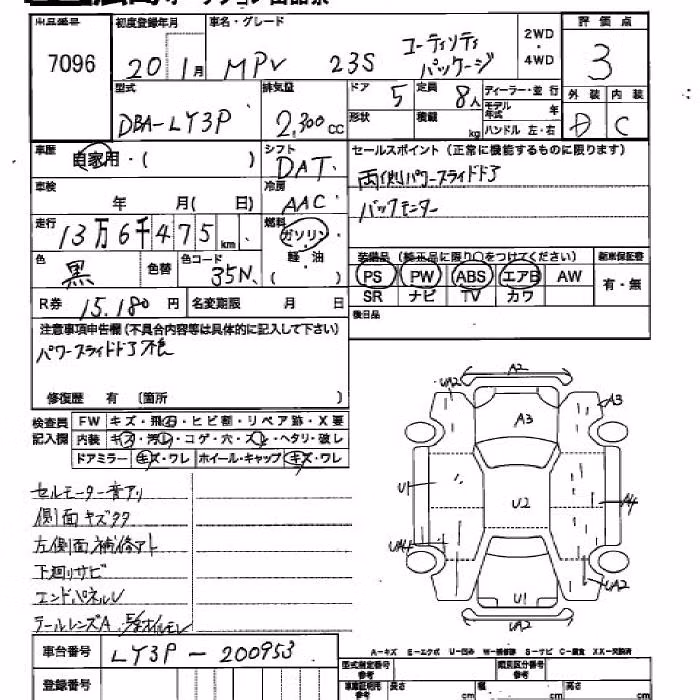 出品番号 初度登録年月 車名・グレード 評価点
7096 20 1月 MPV 23S コーディソディ パッケージ 2WD・4WD 3
型式 排気量 ドア 5 定員 8人 ディーラー・並行 外装 内装
DBA-LY3P 2,300cc 形状 積載 kg モデル年式 年 D C
ハンドル 左・右
車歴 自家用・( ) シフト DAT セールスポイント(正常に機能するものに限ります)
車検 年 月( 日) 冷房 AAC 両側パワースライドドア
走行 13万6千475km 燃料 ガソリン・軽・油 バックモニター
色 黒 色替 色コード 35N 装備品(純正品に限り○をつけてください) 新車保証書
PS PW ABS エアB AW 有・無
R券 15,180円 名変期限 月 日 SR ナビ TV カワ
後日品
注意事項申告欄(不具合内容等は具体的に記入して下さい)
パワースライドドア不良
修復歴 有 〔箇所 〕
検査員記入欄 FW キズ・飛石・ヒビ割・リペア跡・X要
内装 キズ・汚レ・コゲ・穴・スレ・ヘタリ・破レ
ドアミラー キズ・ワレ ホイール・キャップ キズ・ワレ
セルモーター音アリ
側面キズタタ
左側面補修アト
下廻リサビ
エンドパネルU
テールレンズA
A2
UA2 A3
A3
U1 U2 A4
UA4
UA2
U1
UA2
A-キズ E-エクボ U-凹み W-補修跡 S-サビ C-腐食 XX-交換済
車台番号 LY3P-200953
型式指定番号 参考 類別区分番号 参考
登録番号 車庫証明用 参考 長さ cm 幅 cm 高さ cm